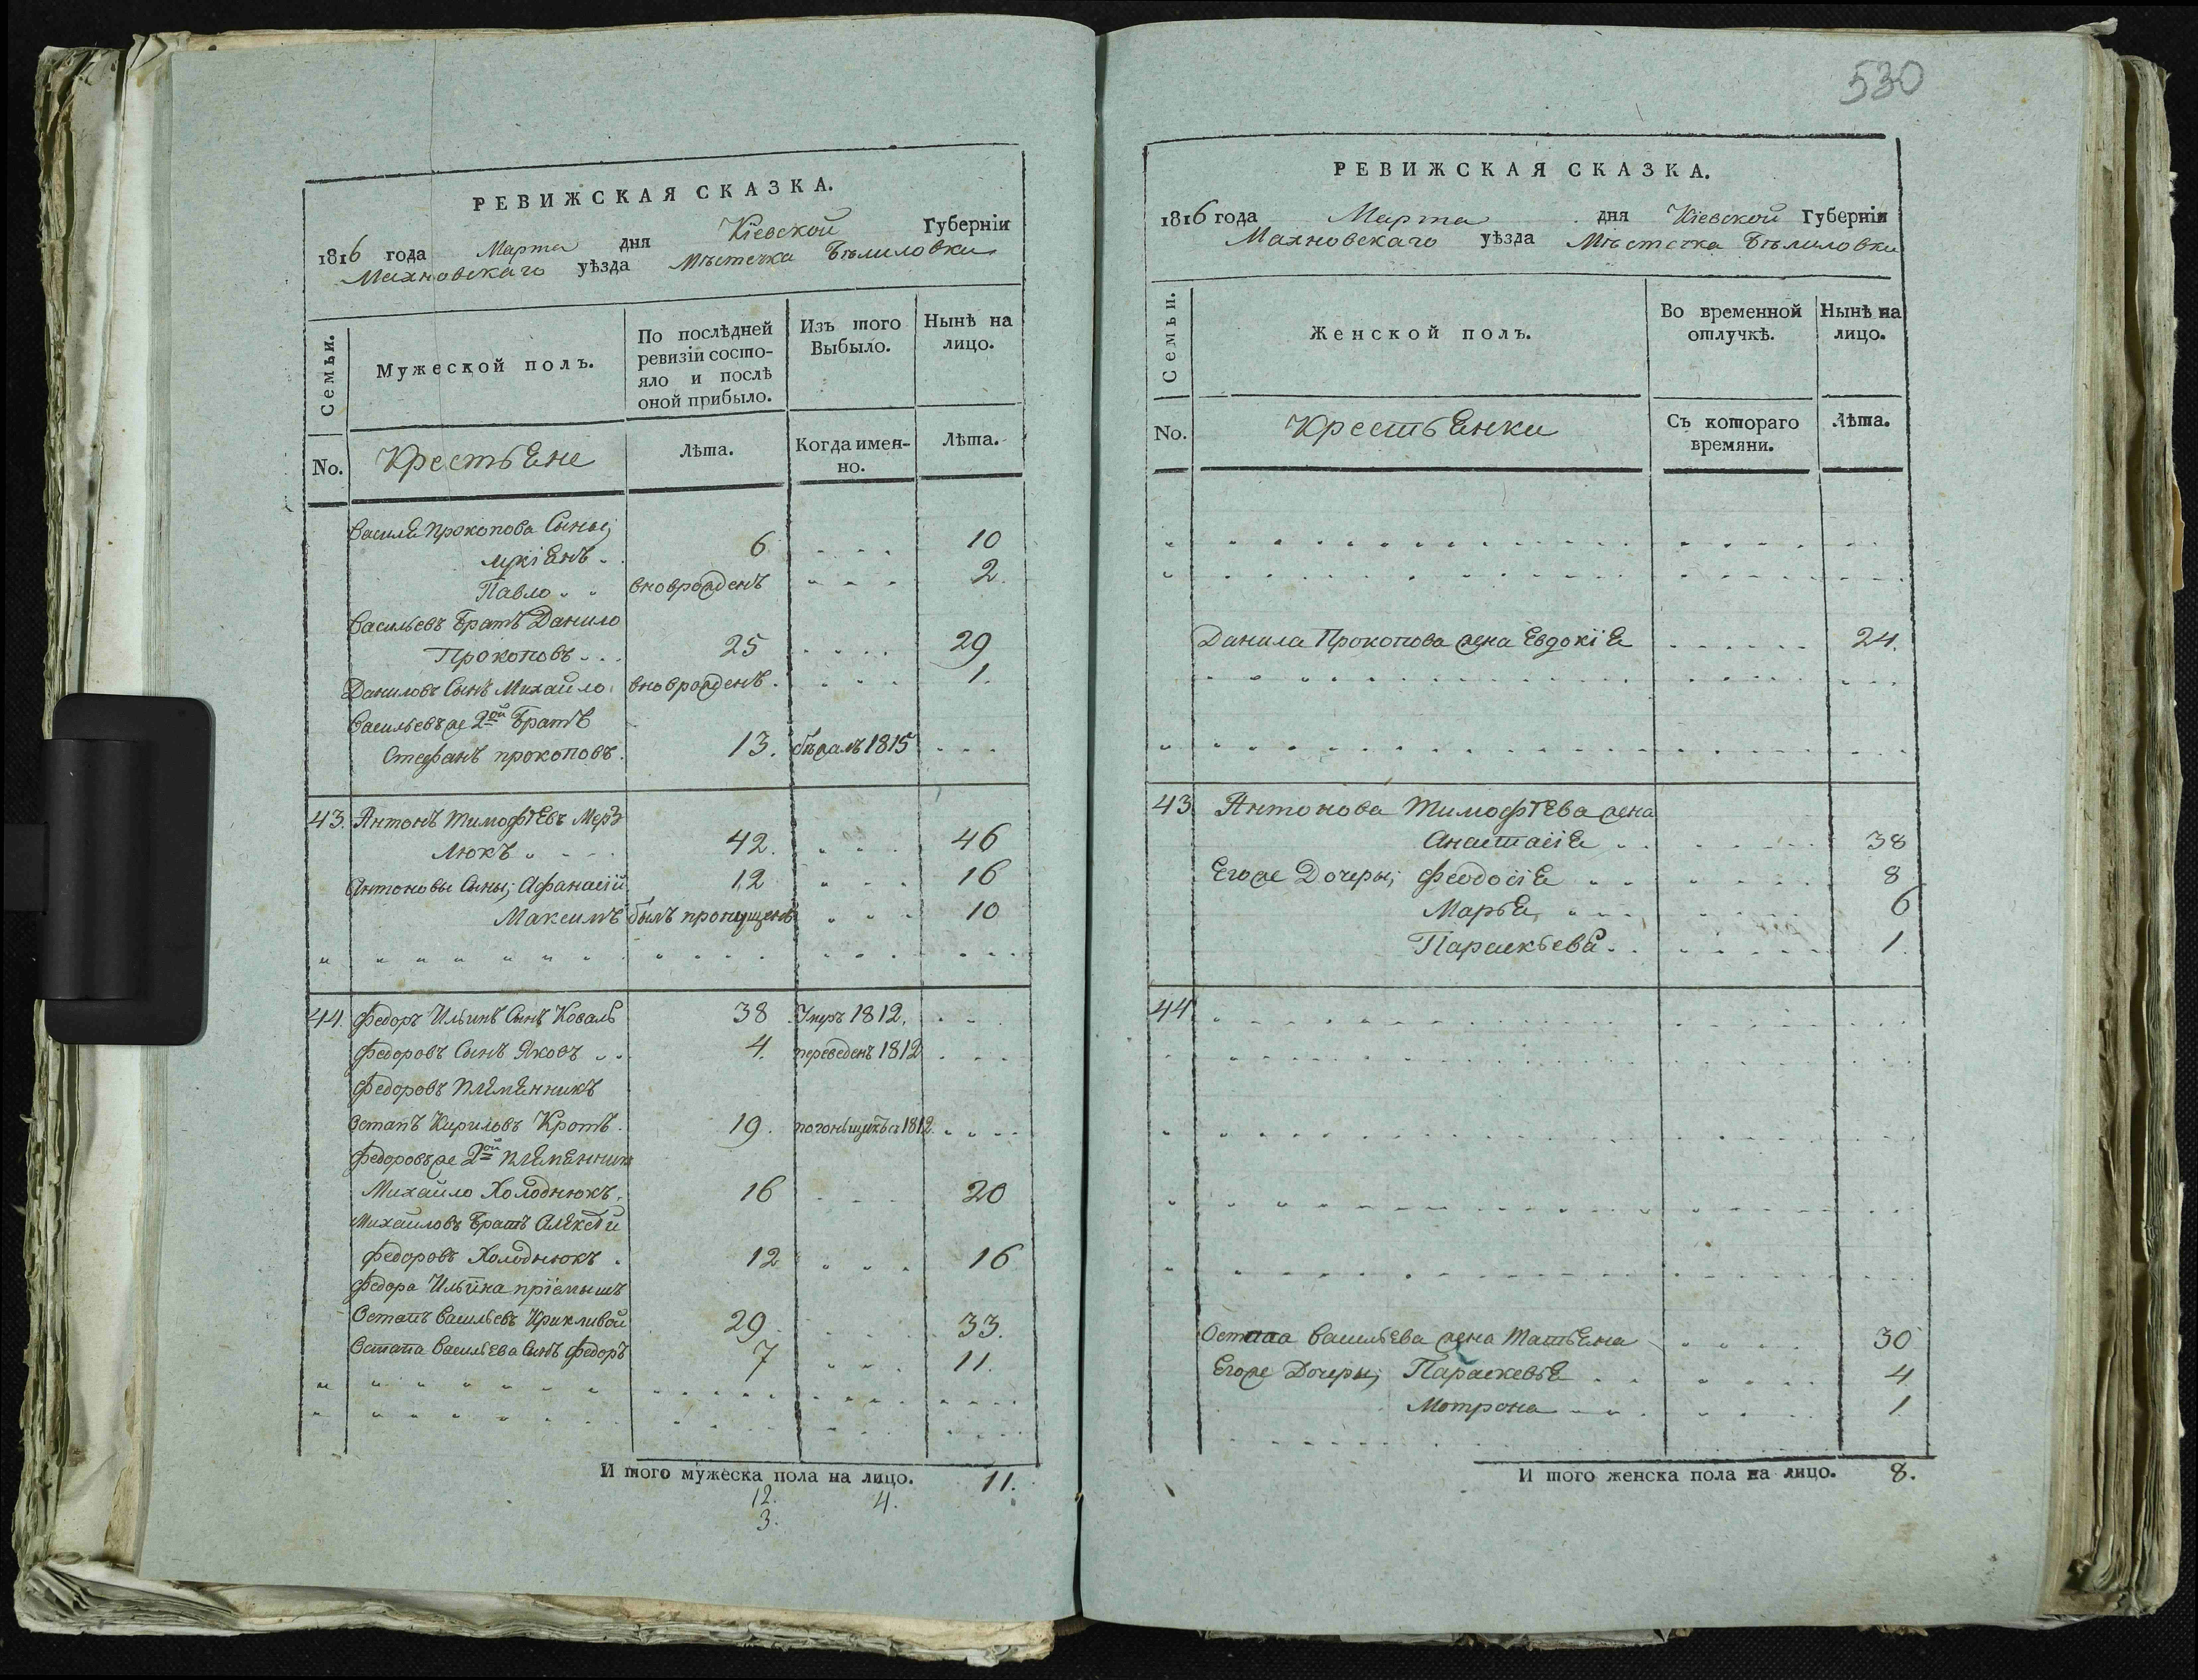 РЕВИЖСКАЯ СКАЗКА.
1816 года Марта дня Кіевской Губерніи
Махновскаго уѣзда Мѣстечка Бѣлиловки
Семьи.
Мужеской полъ.
По послѣдней ревизіи состояло и послѣ оной прибыло.
Изъ того Выбыло.
Нынѣ на лицо.
No.
Крестьяне
Лѣта.
Когда именно.
Лѣта.
Василя Прокопова Сыны;
Лукіянъ 6 10
Павло вноврожденъ 2.
Васильевъ Братъ Данило
Прокоповъ 25 29
Даниловъ Сынъ Михайло вноврожденъ. 1.
Васильевъ же 2ой Братъ
Стефанъ прокоповъ. 13. бѣжалъ 1815
43. Антонъ Тимофѣевъ Мерз
люкъ 42. 46
Антоновы Сыны; Афанасій 12 16
Максимъ былъ пропущенъ 10
44. Федоръ Ильинъ Сынъ Коваль 38 Умръ 1812.
Федоровъ Сынъ Яковъ 4. переведенъ 1812
Федоровъ племянникъ
Остапъ Кириловъ Кротъ. 19. погоньщикъ 1812.
Федоровъ же 2ой племянник
Михайло Холоднюкъ. 16 20
Михайловъ Братъ Алексѣй
Федоровъ Холоднюкъ. 12 16
Федора Ильина пріемышъ
Остапъ Васильевъ Крикливой 29 33.
Остапа Васильева Сынъ Федоръ 7 11.
И того мужеска пола на лицо. 11.
12. 4.
3.
530
РЕВИЖСКАЯ СКАЗКА.
1816 года Марта дня Кіевской Губерніи
Махновскаго уѣзда Мѣстечка Бѣлиловки
Семьи.
Женской полъ.
Во временной отлучкѣ.
Нынѣ на лицо.
No.
Крестьянки
Съ котораго времяни.
Лѣта.
Данила Прокопова жена Евдокія 24.
43 Антонова Тимофѣева жена
Анастасія 38
Егоже Дочери; Феодосія 8
Марья 6
Параскьева 1.
44
Остапа Васильева жена Татьяна 30
Егоже Дочери; Параскевья 4
Мотрона 1.
И того женска пола на лицо. 8.